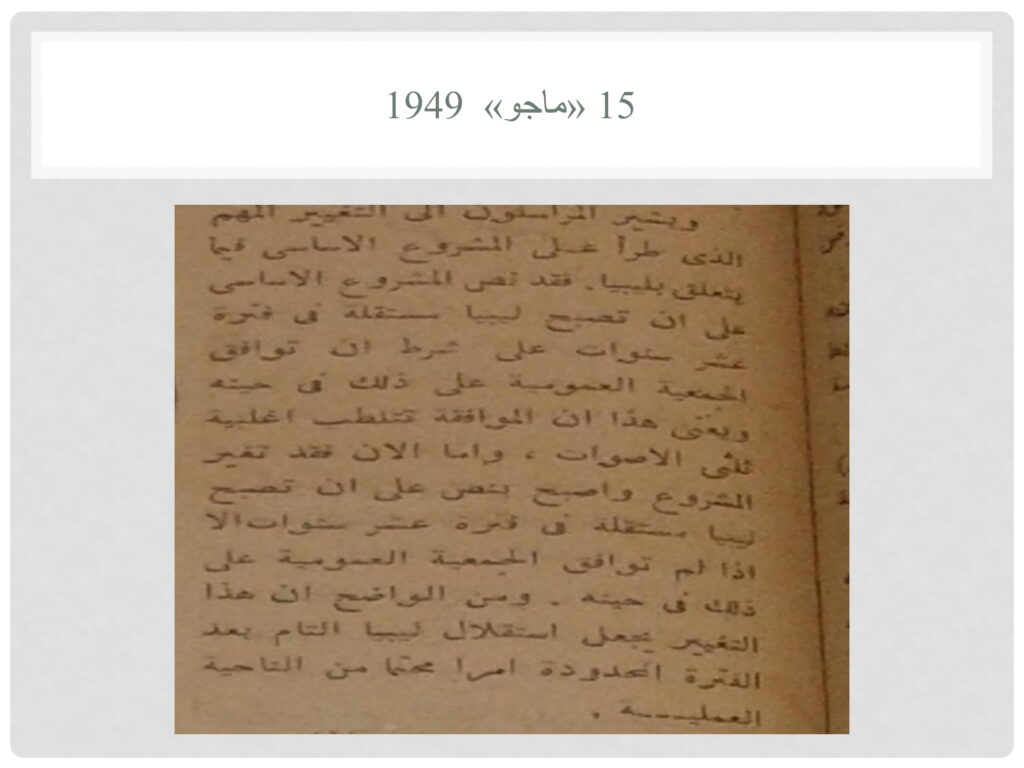 15 «ماجو» 1949
ويشير المراسلون الى التغيير المهم
الذى طرأ على المشروع الاساسى فيما
يتعلق بليبيا. فقد نص المشروع الاساسى
على ان تصبح ليبيا مستقلة فى فترة
عشر سنوات على شرط ان توافق
الجمعية العمومية على ذلك فى حينه
ويعنى هذا ان الموافقة تتلطب اغلبية
ثلثى الاصوات ، واما الان فقد تغير
المشروع واصبح ينص على ان تصبح
ليبيا مستقلة فى فترة عشر سنوات الا
اذا لم توافق الجمعية العمومية على
ذلك فى حينه . ومن الواضح ان هذا
التغيير يجعل استقلال ليبيا التام بعد
الفترة المحدودة امرا محتما من الناحية
العمليـــة .